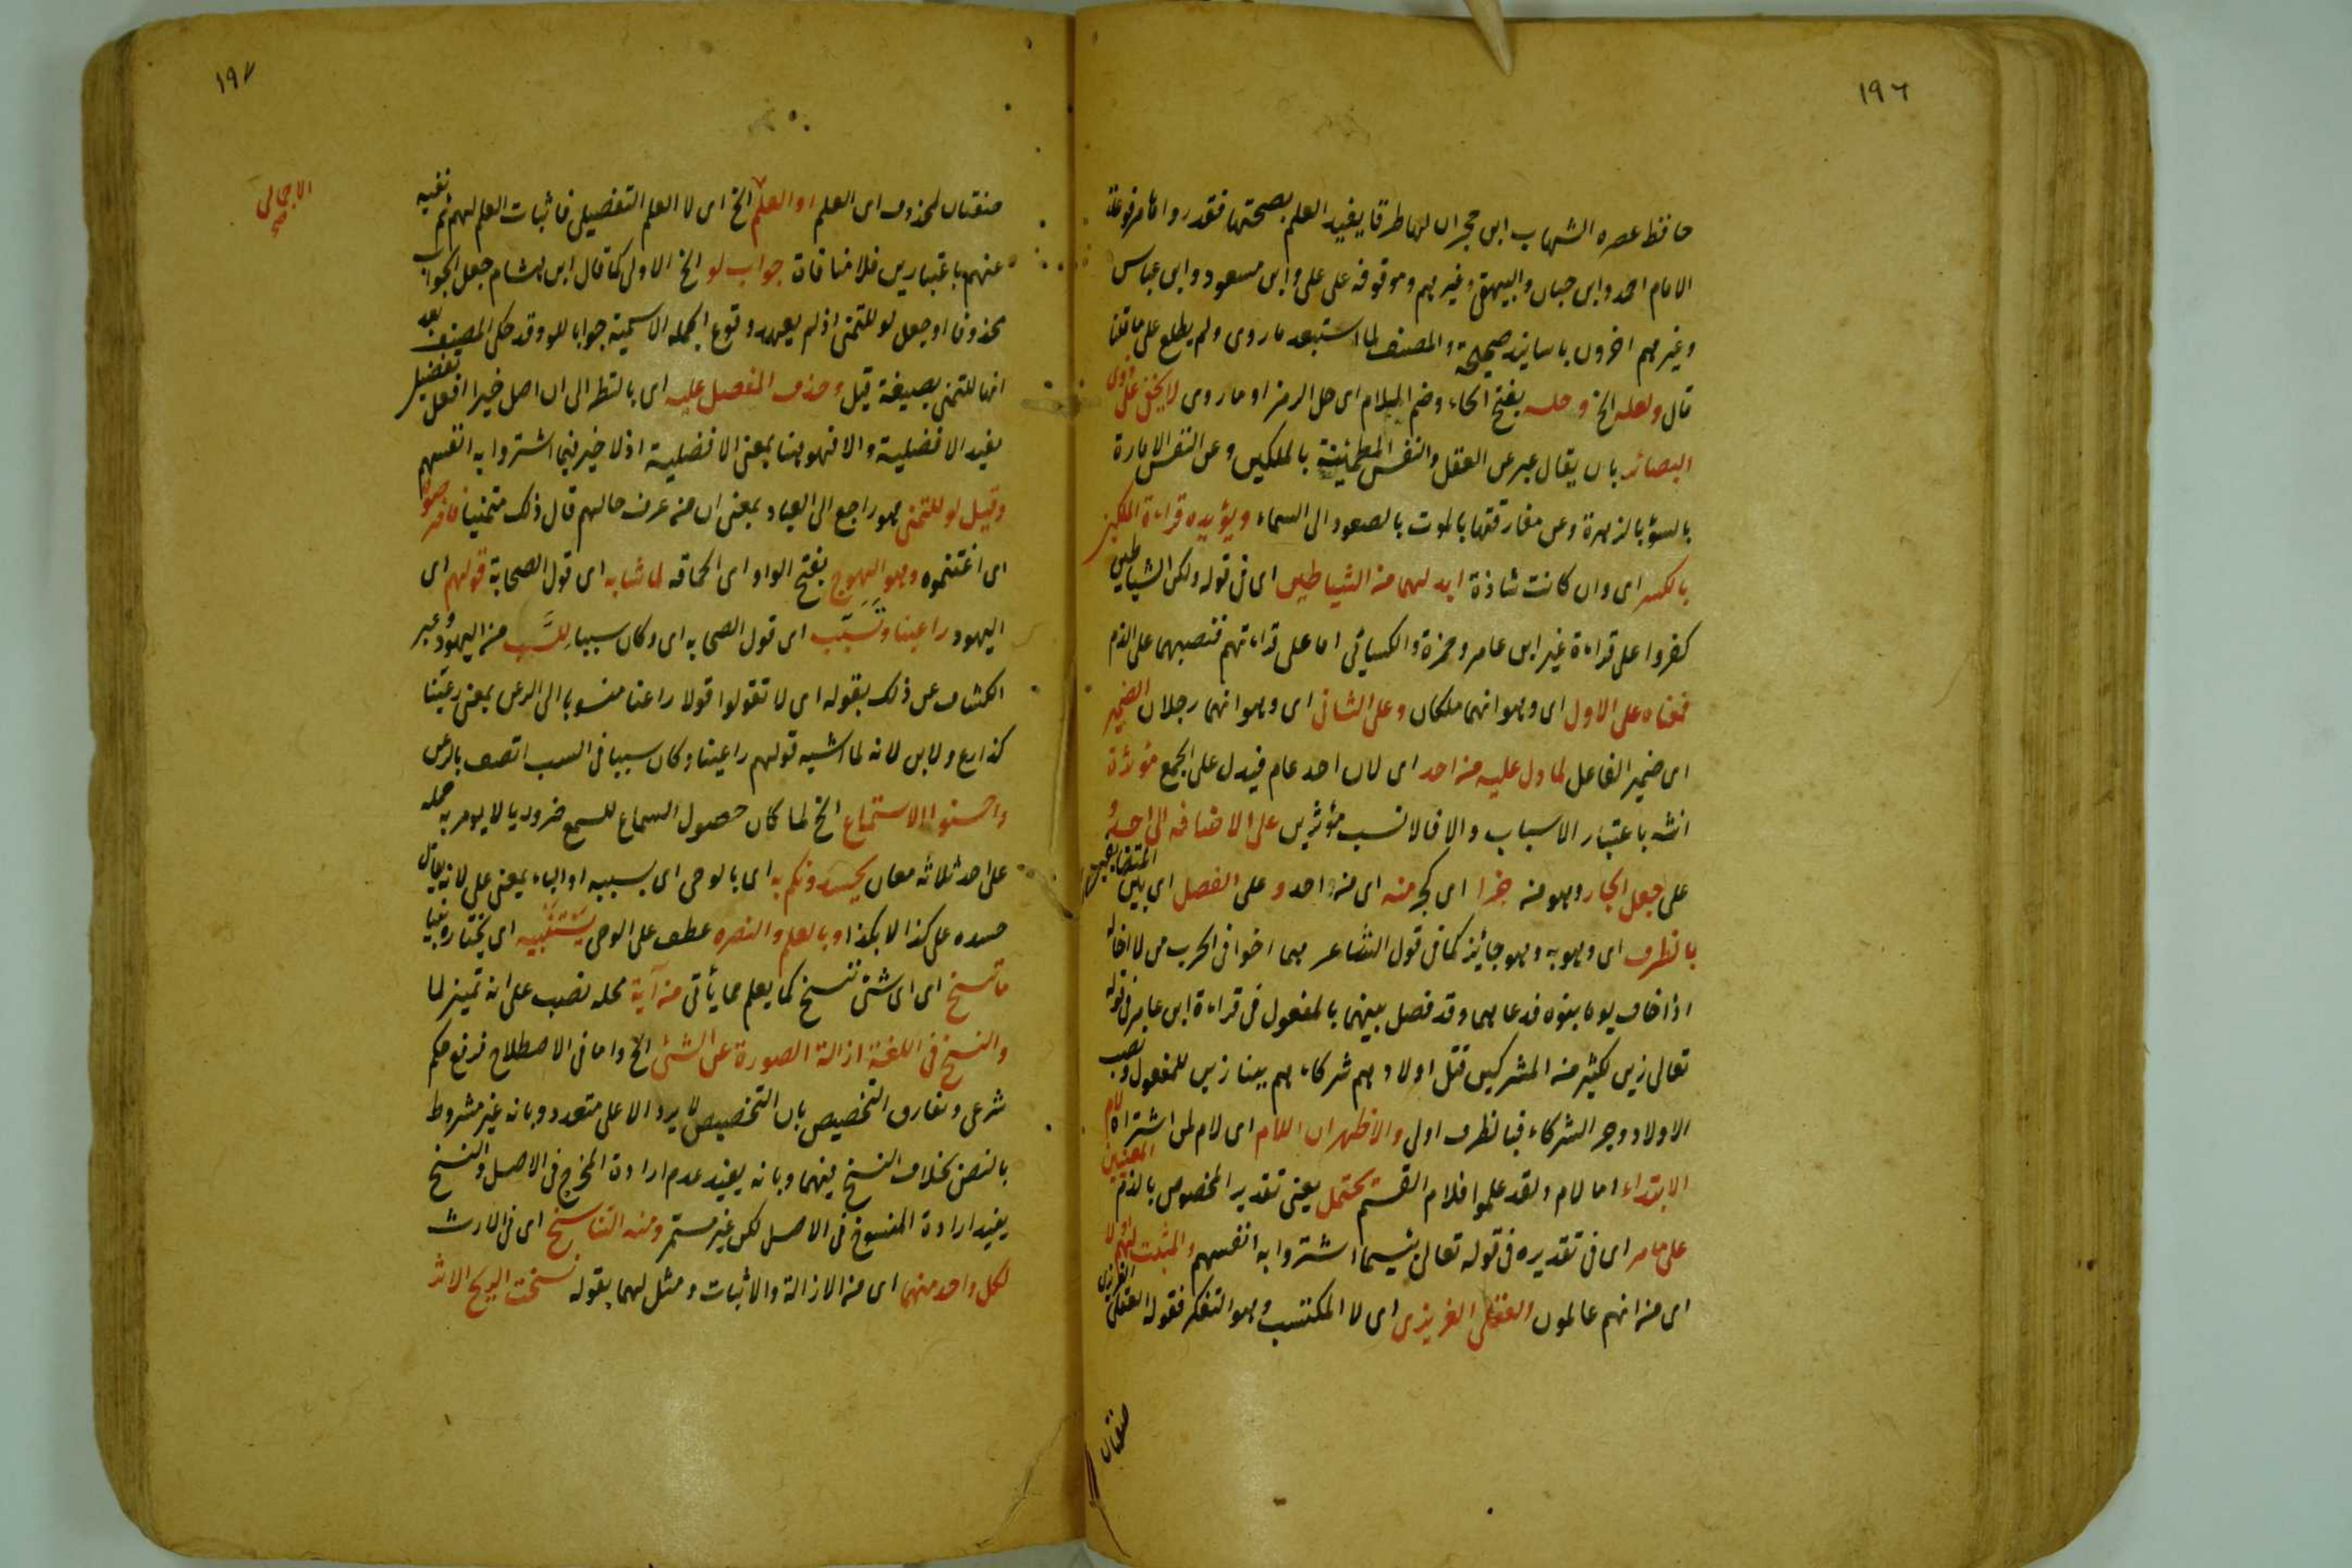 ١٩٦
حافظ عصره الشهاب ابن حجر ان لها طرقا يفيد العلم بصحتها فقد رواها مرفوعة
الامام احمد وابن حبان والبيهقى وغيرهم وموقوفة على على وابن مسعود وابن عباس
وغيرهم اخرون باسانيد صحيحة والمصنف لما استبعد ما روى ولم يطلع على ما قلنا
قال ولعله الخ وحله بفتح الحاء وضم اللام اى حل الرمز او ما روى لا يخفى على ذوى
البصائر بان يقال عبر عن العقل والنفس المطمئنة بالملكين وعن النفس الامارة
بالسؤ بالزهرة وعن مفارقتها بالموت بالصعود الى السماء ويؤيده قراءة الملكين
بالكسر اى وان كانت شاذة ابدلهما من الشياطين اى فى قوله ولكن الشياطين
كفروا على قراءة غير ابن عامر وحمزة والكسائى اما على قراءتهم فنصبهما على الذم
فمعناه على الاول اى وهو انهما ملكان وعلى الثانى اى وهو انهما رجلان الضمير
اى ضمير الفاعل لما دل عليه من احد اى لان احد عام فيدل على الجمع مؤثرة
انثه باعتبار الاسباب والا فالانسب مؤثرين على الاضافه الى احد و
على جعل الجار وهو من جزا اى كجزء منه اى من احد و على الفصل اى بين المتضايفين
بالظرف اى وهو به وهو جائز كما فى قول الشاعر هما اخوا فى الحرب من لا اخا له
اذا خاف يوما نبوة فدعاهما وقد فصل بينهما بالمفعول فى قراءة ابن عامر فى قوله
تعالى زين لكثير من المشركين قتل اولادهم شركاءهم ببناء زين للمفعول ونصب
الاولاد وجر الشركاء فبالظرف اولى والاظهر ان اللام اى لام لمن اشتراه لام
الابتداء اما لام ولقد علموا فلام القسم يحتمل المعنيين يعنى تقدير المخصوص بالذم
على ما مر اى فى تقديره فى قوله تعالى بئسما اشتروا به انفسهم والمثبت لهم اولا
اى من انهم عالمون العقل الغريزى اى لا المكتسب وهو التفكر فقوله العقل الغريزى
صفتان
١٩٧
صفتان لمحذوف اى العلم او العلم الخ اى لا العلم التفصيلى فاثبات العلم لهم ثم نفيه
الاجمالى صح
عنهم باعتبارين فلا منافاة جواب لو الخ الاولى كما قال ابن هشام جعل الجواب
محذوفا او جعل لو للتمنى اذ لم يعهد وقوع الجمله الاسمية جوابا للو وقد حكى المصنف بعد
انها للتمنى بصيغة قيل وحذف المفضل عليه اى بالنظر الى ان اصل خيرا افعل تفضيل
يفيد الافضلية والا فهو هنا بمعنى الا فضلية اذ لا خير فيما اشتروا به انفسهم
وقيل لو للتمنى هو راجع الى العباد بمعنى ان من عرف حالهم قال ذلك متمنيا فافترصوه
اى اغتنموه وهو الهوج بفتح الواو اى الحماقه لما شابه اى قول الصحابة قولهم اى
اليهود راعينا وتسبّب اى قول الصحابه اى وكان سببا للسّب من اليهود وعبر
الكشاف عن ذلك بقوله اى لا تقولوا قولا راعنا منسوبا الى الرعن بمعنى رعينا
كدارع ولابن لانه لما اشبه قولهم راعينا وكان سببا فى السب اتصف بالرعن
واحسنوا الاستماع الخ لما كان حصول السماع للسمع ضروريا لا يومر به حمله
على احد ثلاثة معان يحسدونكم به اى بالوحى اى بسببه او الباء بمعنى على لانه يقال
حسده على كذا لا بكذا وبالعلم والنصره عطف على الوحى يستنبيه اى يختاره نبيا
ما ننسخ اى اى شئ ننسخ كما يعلم مما يأتى من آية محله نصب على انه تمييز لما
والنسخ فى اللغة ازالة الصورة عن الشئ الخ واما فى الاصطلاح فرفع حكم
شرعى وتفارق التخصيص بان التخصيص لا يرد الا على متعدد وبانه غير مشروط
بالنص بخلاف النسخ فيهما وبانه يفيد عدم ارادة المخرج فى الاصل والنسخ
يفيد ارادة المنسوخ فى الاصل لكن غير مستمر ومنه التناسخ اى فى الارث
لكل واحد منهما اى من الازالة والاثبات ومثل لهما بقوله نسخت الريح الاثر